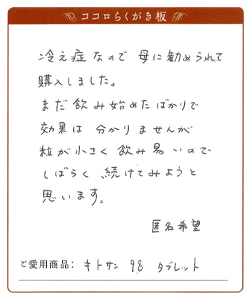 ココロらくがき板
冷え症なので 母に勧められて
購入しました。
まだ飲み始めたばかりで
効果は 分かりませんが
粒が小さく 飲み易いので
しばらく 続けてみようと
思います。
匿名希望
ご愛用商品: キトサン 98 タブレット